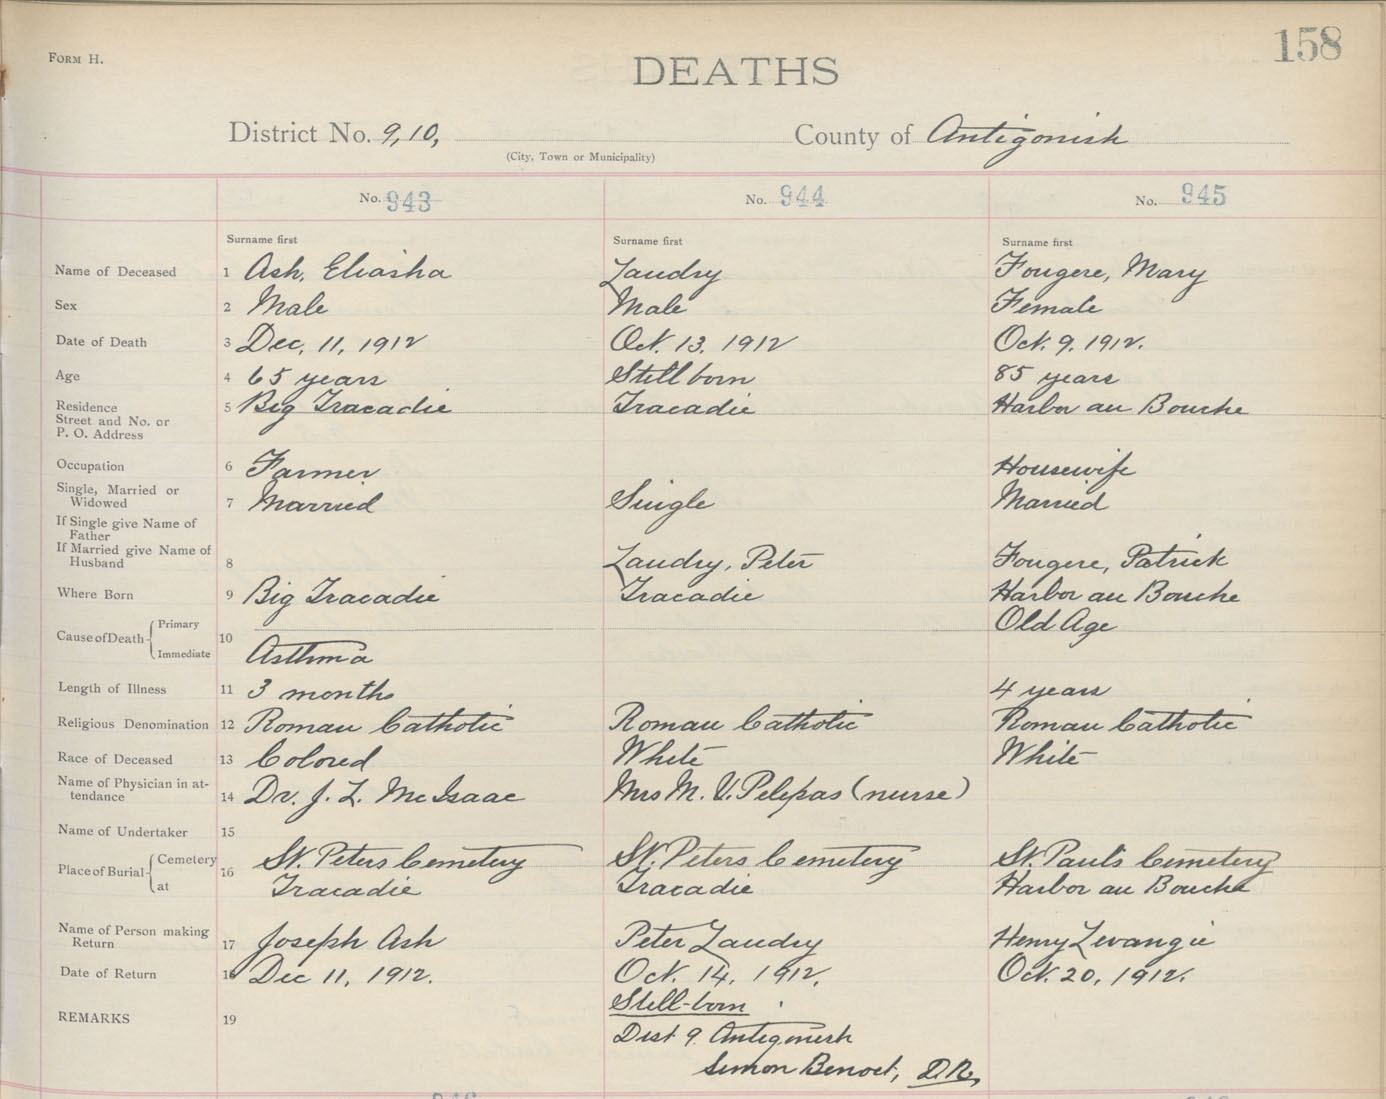 158
FORM H.
DEATHS
District No. 9, 10, County of Antigonish
(City, Town or Municipality)
No. 943 No. 944 No. 945
Surname first Surname first Surname first
Name of Deceased 1 Ash, Eliasha Landry Fougere, Mary
Sex 2 Male Male Female
Date of Death 3 Dec. 11, 1912 Oct. 13. 1912 Oct. 9. 1912.
Age 4 65 years Still born 85 years
Residence Street and No. or P. O. Address 5 Big Tracadie Tracadie Harbor au Bouche
Occupation 6 Farmer Housewife
Single, Married or Widowed 7 Married Single Married
If Single give Name of Father
If Married give Name of Husband 8 Landry, Peter Fougere, Patrick
Where Born 9 Big Tracadie Tracadie Harbor au Bouche
Cause of Death Primary 10 Old Age
Immediate Asthma
Length of Illness 11 3 months 4 years
Religious Denomination 12 Roman Catholic Roman Catholic Roman Catholic
Race of Deceased 13 Colored White White
Name of Physician in attendance 14 Dr. J. L. McIsaac Mrs M. V. Pelepas (nurse)
Name of Undertaker 15
Place of Burial Cemetery 16 St. Peters Cemetery St. Peters Cemetery St. Paul's Cemetery
at Tracadie Tracadie Harbor au Bouche
Name of Person making Return 17 Joseph Ash Peter Landry Henry Levangie
Date of Return 18 Dec 11, 1912. Oct. 14, 1912. Oct. 20, 1912.
REMARKS 19 Still-born
Dist 9. Antigonish
Simon Benoit, D.R.